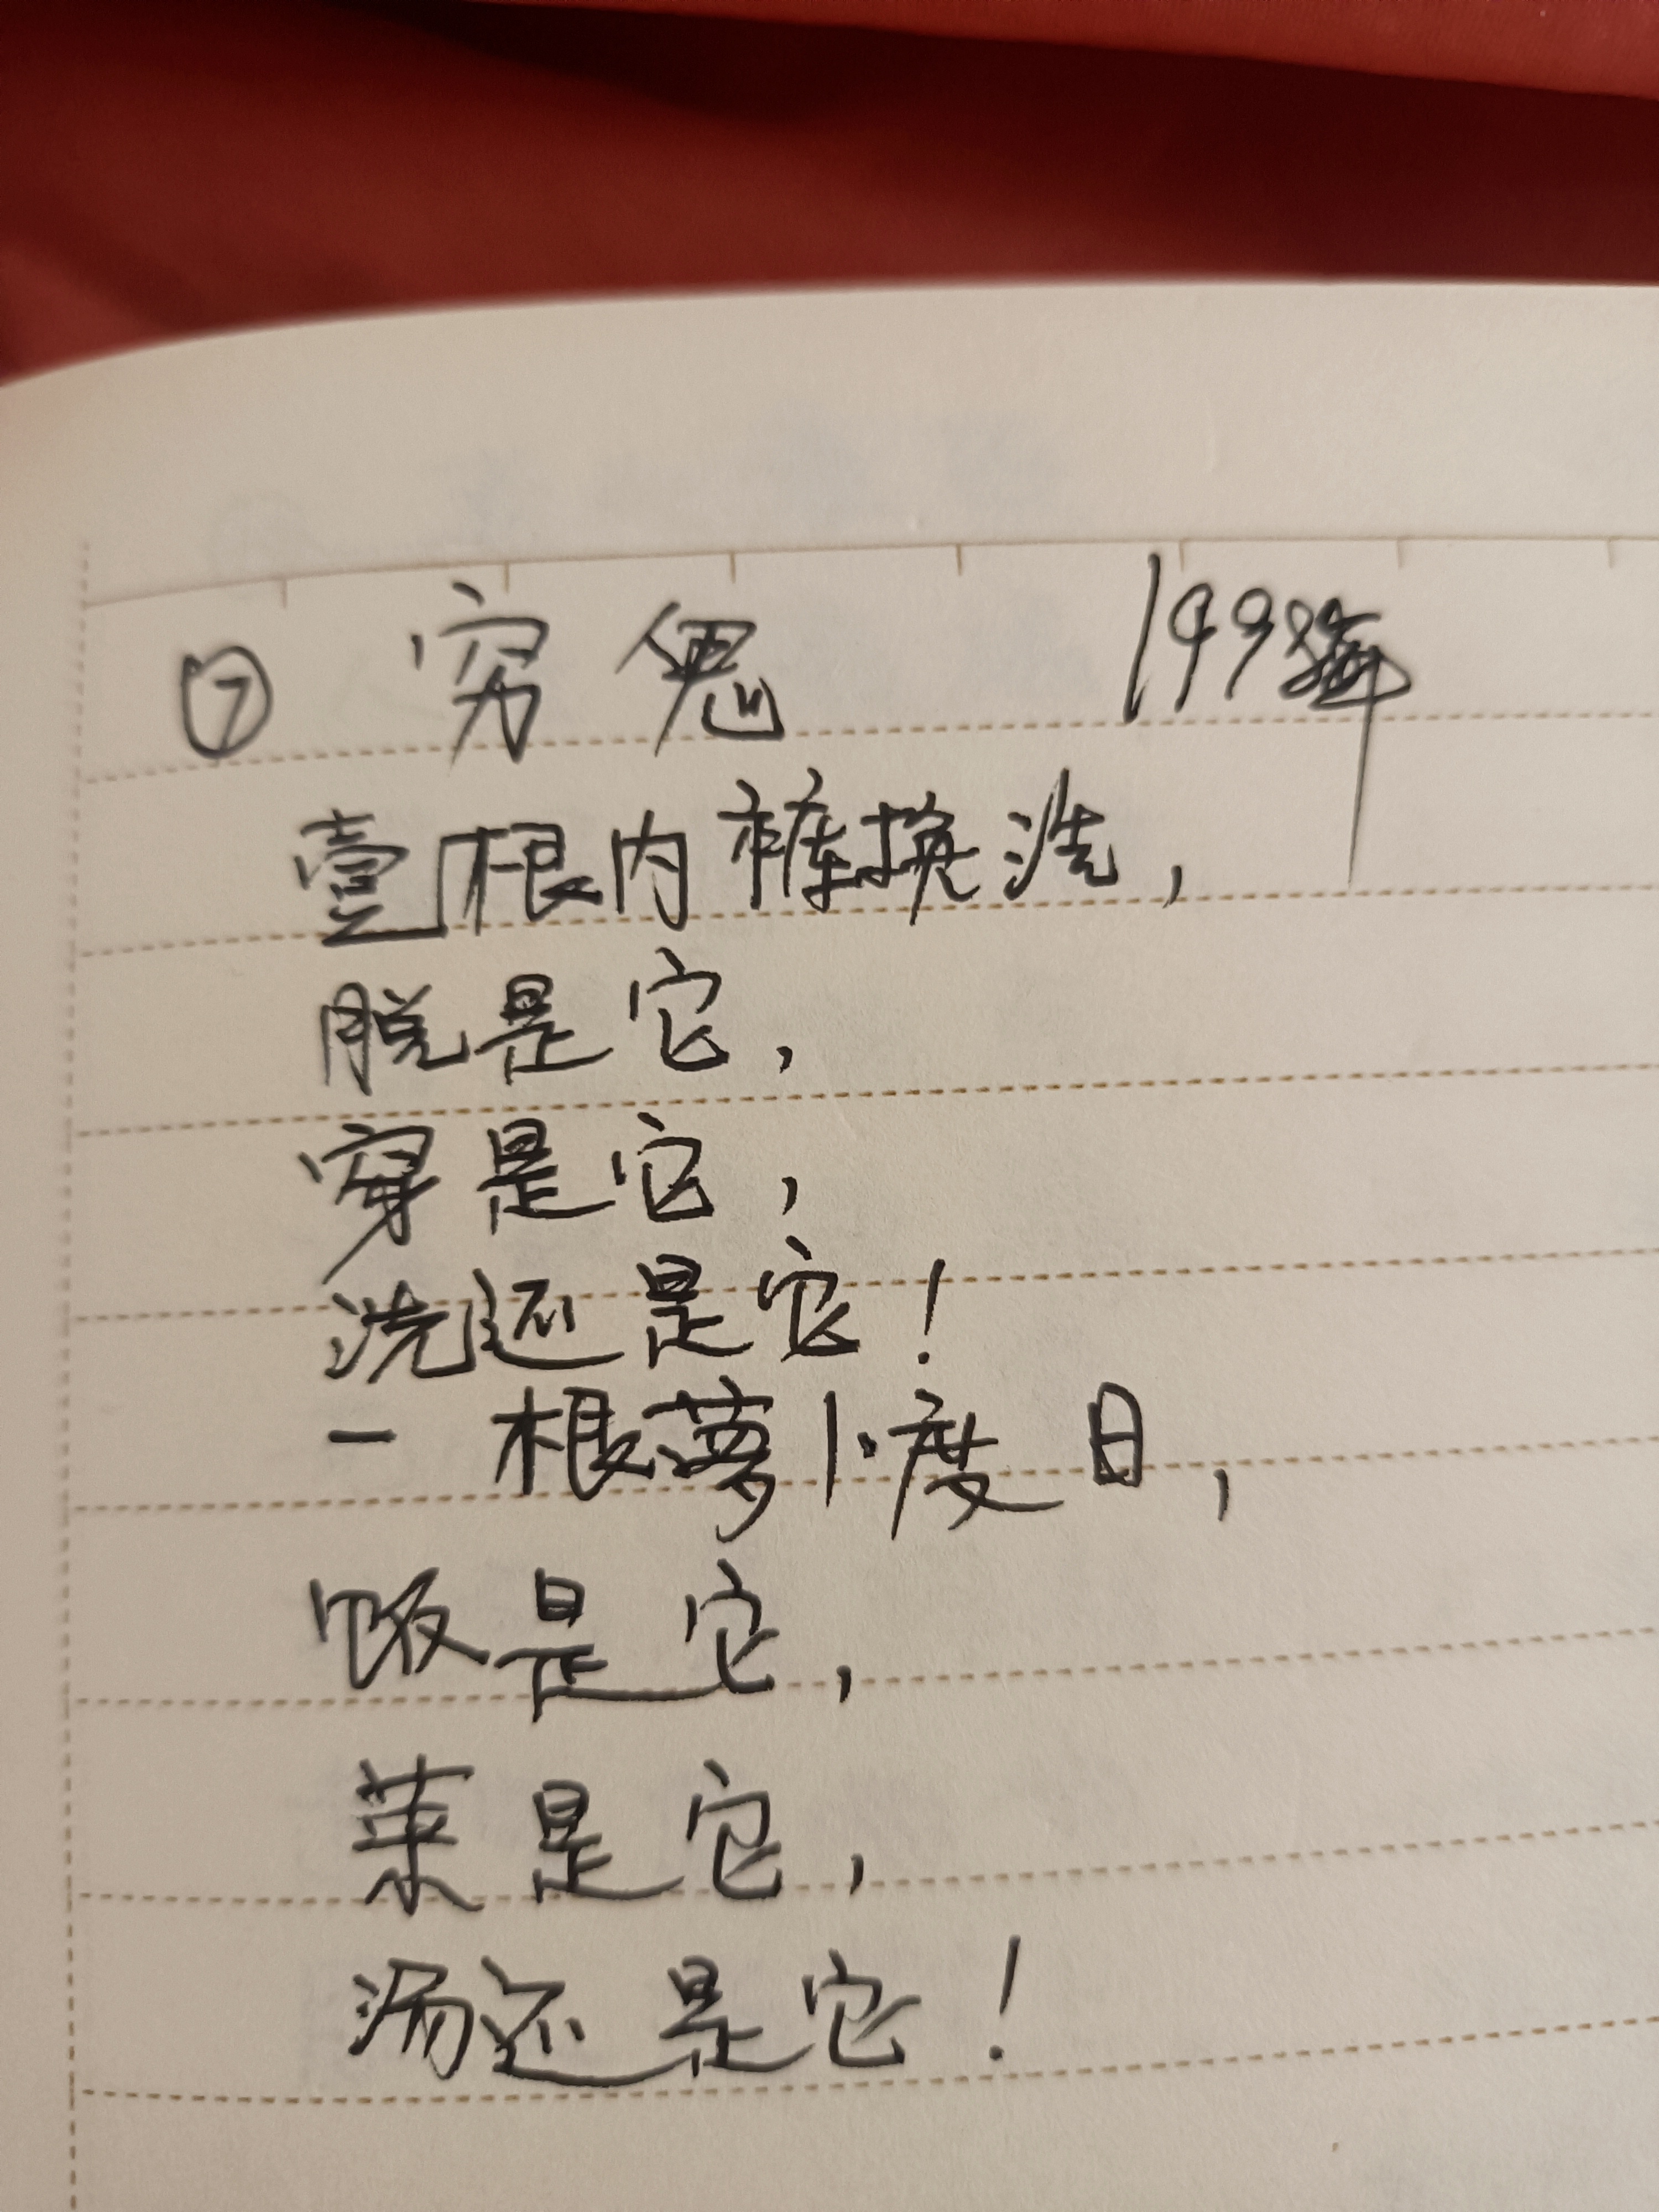 ⑦ 穷鬼 199 年
壹根内裤换洗，
脱是它，
穿是它，
洗还是它！
一根萝卜度日，
饭是它，
菜是它，
汤还是它！